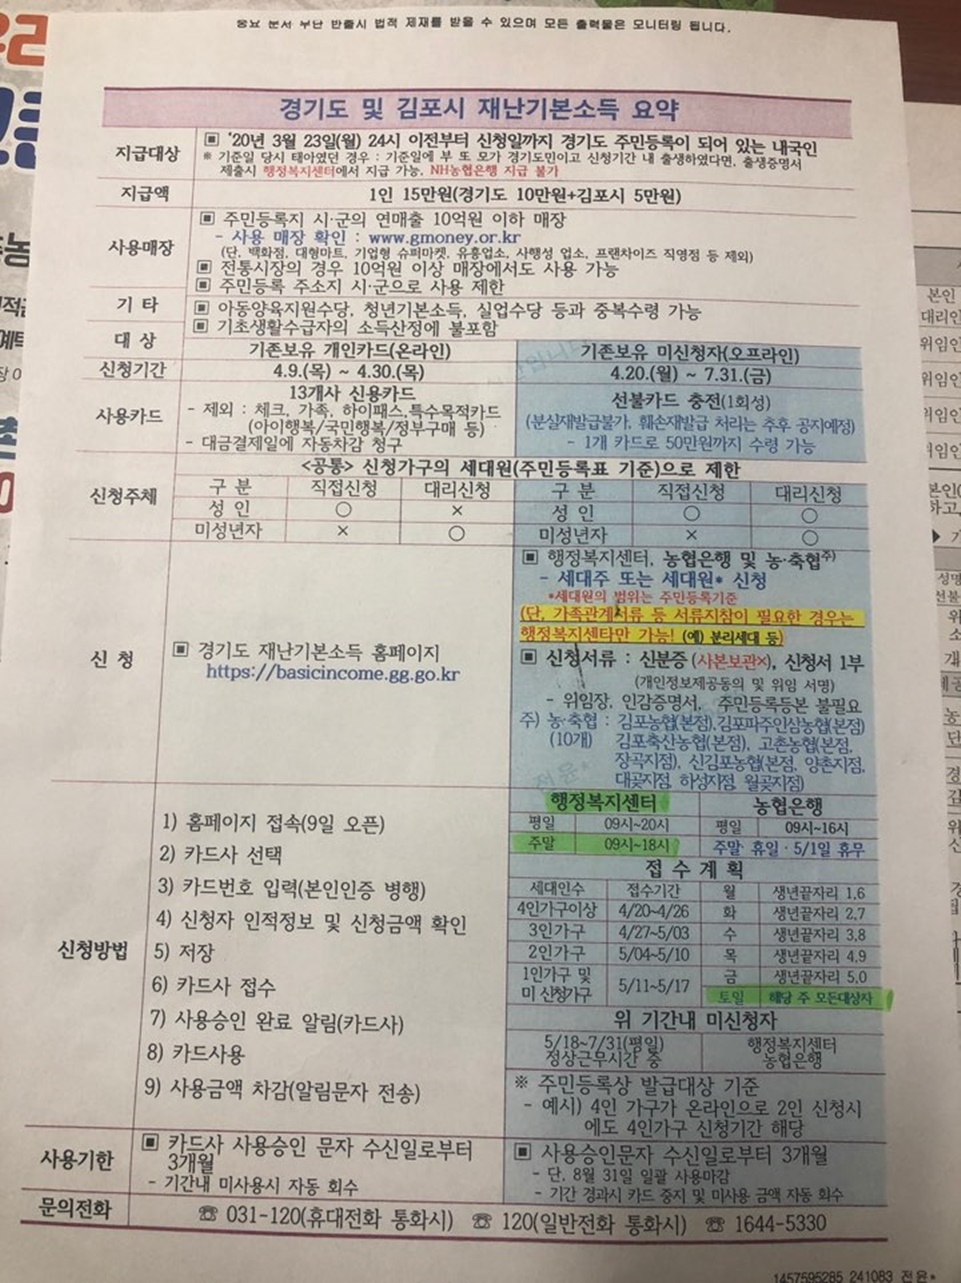 중요 문서 무단 반출시 법적 제재를 받을 수 있으며 모든 출력물은 모니터링 됩니다.
경기도 및 김포시 재난기본소득 요약
지급대상
▣ '20년 3월 23일(월) 24시 이전부터 신청일까지 경기도 주민등록이 되어 있는 내국인
※ 기준일 당시 태아였던 경우 : 기준일에 부 또 모가 경기도민이고 신청기간 내 출생하였다면, 출생증명서
제출시 행정복지센터에서 지급 가능, NH농협은행 지급 불가
지급액
1인 15만원(경기도 10만원+김포시 5만원)
사용매장
▣ 주민등록지 시·군의 연매출 10억원 이하 매장
- 사용 매장 확인 : www.gmoney.or.kr
(단, 백화점, 대형마트, 기업형 슈퍼마켓, 유흥업소, 사행성 업소, 프랜차이즈 직영점 등 제외)
▣ 전통시장의 경우 10억원 이상 매장에서도 사용 가능
▣ 주민등록 주소지 시·군으로 사용 제한
기 타
▣ 아동양육지원수당, 청년기본소득, 실업수당 등과 중복수령 가능
▣ 기초생활수급자의 소득산정에 불포함
대 상
기존보유 개인카드(온라인)
기존보유 미신청자(오프라인)
신청기간
4.9.(목) ~ 4.30.(목)
4.20.(월) ~ 7.31.(금)
사용카드
13개사 신용카드
- 제외 : 체크, 가족, 하이패스,특수목적카드
(아이행복/국민행복/정부구매 등)
- 대금결제일에 자동차감 청구
선불카드 충전(1회성)
(분실재발급불가, 훼손재발급 처리는 추후 공지예정)
- 1개 카드로 50만원까지 수령 가능
신청주체
<공통> 신청가구의 세대원(주민등록표 기준)으로 제한
구 분 직접신청 대리신청 구 분 직접신청 대리신청
성 인 ○ × 성 인 ○ ○
미성년자 × ○ 미성년자 × ○
신 청
▣ 경기도 재난기본소득 홈페이지
https://basicincome.gg.go.kr
▣ 행정복지센터, 농협은행 및 농·축협주)
- 세대주 또는 세대원* 신청
*세대원의 범위는 주민등록기준
(단, 가족관계서류 등 서류지참이 필요한 경우는
행정복지센타만 가능! (예) 분리세대 등)
▣ 신청서류 : 신분증 (사본보관×), 신청서 1부
(개인정보제공동의 및 위임 서명)
- 위임장, 인감증명서, 주민등록등본 불필요
주) 농·축협 : 김포농협(본점),김포파주인삼농협(본점)
(10개) 김포축산농협(본점), 고촌농협(본점,
장곡지점), 신김포농협(본점, 양촌지점,
대곶지점, 하성지점, 월곶지점)
신청방법
1) 홈페이지 접속(9일 오픈)
2) 카드사 선택
3) 카드번호 입력(본인인증 병행)
4) 신청자 인적정보 및 신청금액 확인
5) 저장
6) 카드사 접수
7) 사용승인 완료 알림(카드사)
8) 카드사용
9) 사용금액 차감(알림문자 전송)
행정복지센터 농협은행
평일 09시~20시 평일 09시~16시
주말 09시~18시 주말 휴일·5/1일 휴무
접 수 계 획
세대인수 접수기간 월 생년끝자리 1,6
4인가구이상 4/20~4/26 화 생년끝자리 2,7
3인가구 4/27~5/03 수 생년끝자리 3,8
2인가구 5/04~5/10 목 생년끝자리 4,9
1인가구 및 미 신청가구 5/11~5/17 금 생년끝자리 5,0
토일 해당 주 모든대상자
위 기간내 미신청자
5/18~7/31(평일) 행정복지센터
정상근무시간 중 농협은행
※ 주민등록상 발급대상 기준
- 예시) 4인 가구가 온라인으로 2인 신청시
에도 4인가구 신청기간 해당
사용기한
▣ 카드사 사용승인 문자 수신일로부터
3개월
- 기간내 미사용시 자동 회수
▣ 사용승인문자 수신일로부터 3개월
- 단. 8월 31일 일괄 사용마감
- 기간 경과시 카드 중지 및 미사용 금액 자동 회수
문의전화
☎ 031-120(휴대전화 통화시) ☎ 120(일반전화 통화시) ☎ 1644-5330
1457595285 241083 전윤*
본인
대리인